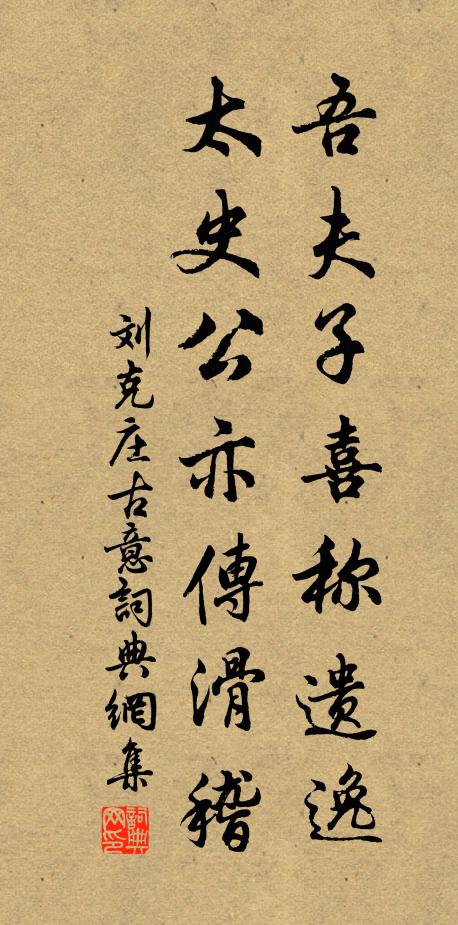 吾夫子喜称遗逸
太史公亦傳滑稽
刘克庄古意詞典網集
詞典网印